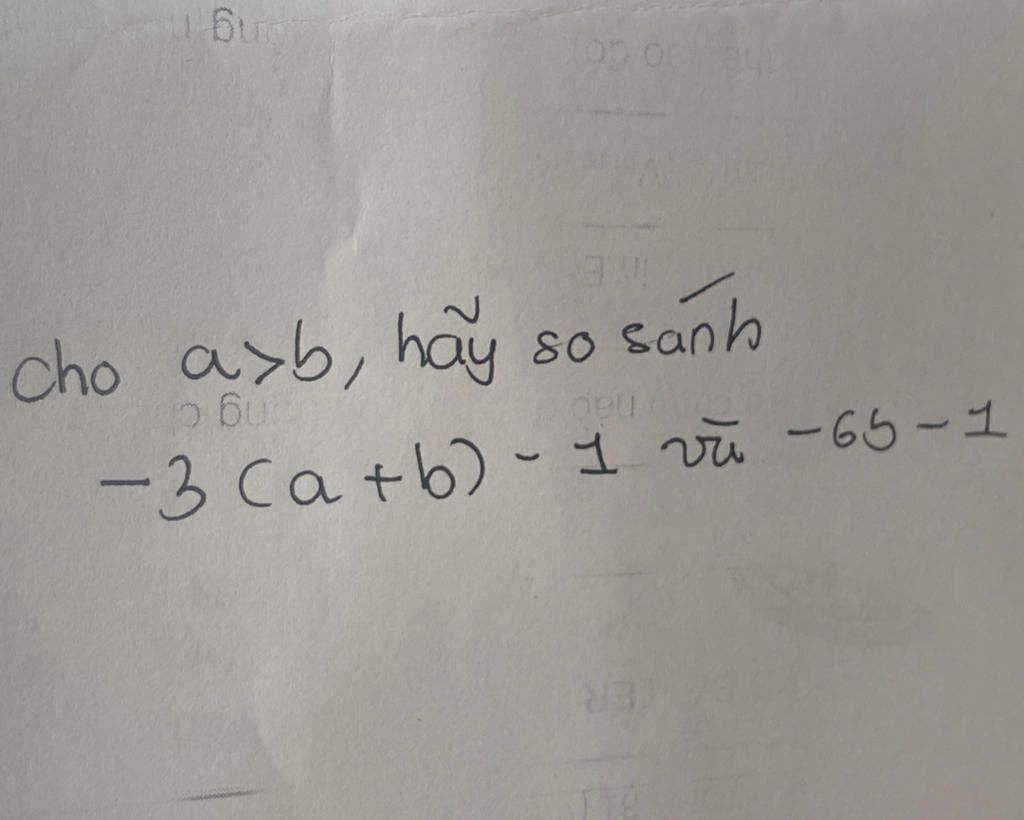 cho a>b, hãy so sánh
-3 (a+b) - 1 và -6b-1